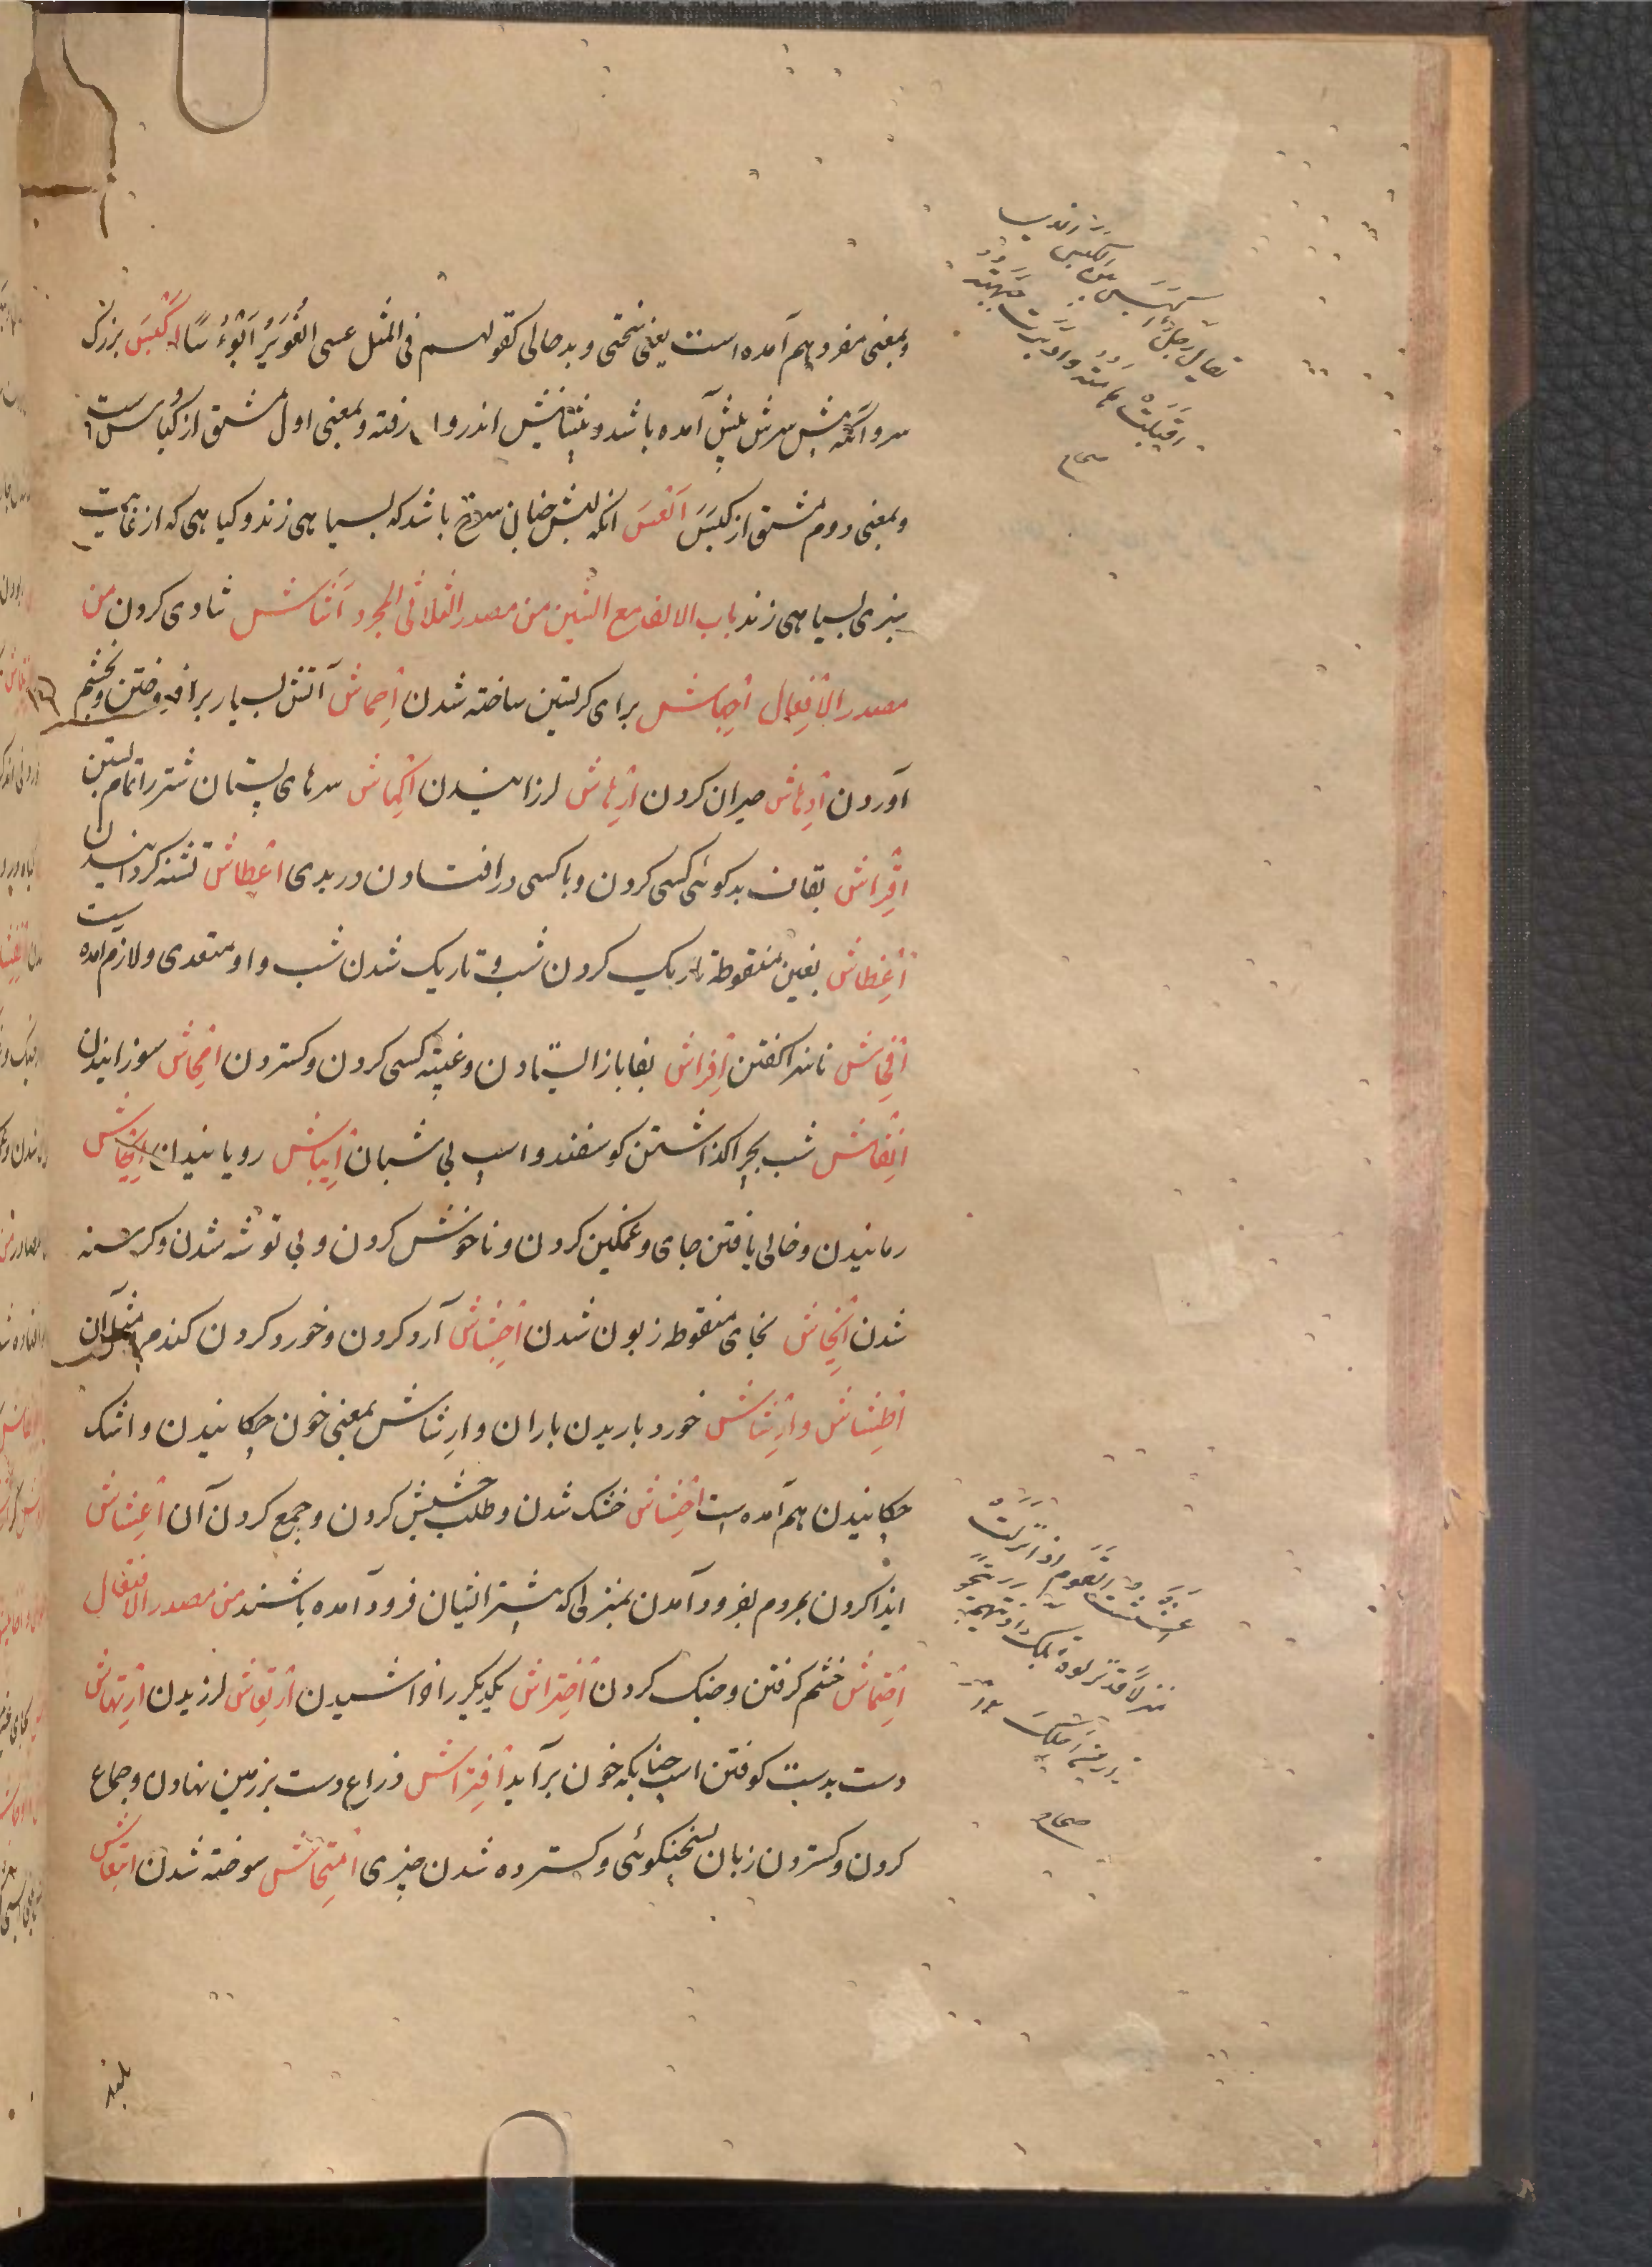 و بمعنی مفرد هم آمده است یعنی سختی و بدحالی کقولهم فی المثل عسی الغُوَیرُ اَبْؤُسًا اَکْبَسَ بزرک
سر و آنکه پیش سرش پیش آمده باشد و پیشانیش اندر وا رفته و بمعنی اول مشتق از کباس است
و بمعنی دوم مشتق از کَبَسَ اَلْعَسَ انکه لبش چنان سرخ باشد که بسیاهی زند و کیاهی که از غایت
سبزی بسیاهی زند باب الالف مع الشین من مصدر الثلاثی المجرد اَشَاش شادی کردن من
مصدر الاِفْعِال اِجْهَاش برای کریستن ساخته شدن اِحماش آتش بسیار برافروختن و بخشم
آوردن اِدهاش حیران کردن اِرعاش لرزانیدن اِکماش سرهای پستان شتر را تمام بستن
اِقراش بقاف بدکوئی کسی کردن و با کسی درافتادن در بدی اِعطاش تشنه کردانیدن
اِغطاش بغین منقوطة تاریک کردن شب و تاریک شدن شب و او متعدی و لازم آمده است
اِفحاش ناسزا کفتن اِفراش بفا باز ایستادن و غیبته کسی کردن و کستردن اِمحاش سوزانیدن
اِنفاش شب بچرا کذاشتن کوسفند و اسپ بی شبان اِنباش رویانیدن اِیحاش
رمانیدن و خالی یافتن جای و غمکین کردن و ناخوش کردن و بی توشه شدن و کرسنه
شدن اِیخاش بخای منقوطه زبون شدن اِجشاش آرد کردن و خورد کردن کندم و مثل آن
اِطشاش و اِرشاش خورد باریدن باران و اِرشاش بمعنی خون چکانیدن و اشک
چکانیدن هم آمده است اِحشاش خشک شدن و طلب حشیش کردن و جمع کردن آن اِعشاش
ایذا کردن بمردم بفرود آمدن بمنزلی که پیشتر انثیان فرود آمده باشند من مصدر الافتعال
اِحتماش خشم کرفتن و جنک کردن اِخترَاش یکدیکر را خراشیدن اِرتعاش لرزیدن اِرتهاش
دست بدست کوفتن اسپ چنانکه خون برآید اِفتراش ذراع دست بزمین نهادن و جماع
کردن و کستردن زبان بسخنکوئی و کسترده شدن چیزی اِمتحاش سوخته شدن اِنتعاش
بلند
یقال رجل
اقبلت هامته وادبرت جبهته
صحاح
اعششت القوم اذا نزلت
منزلا قد نزلوه قبلک
صحاح